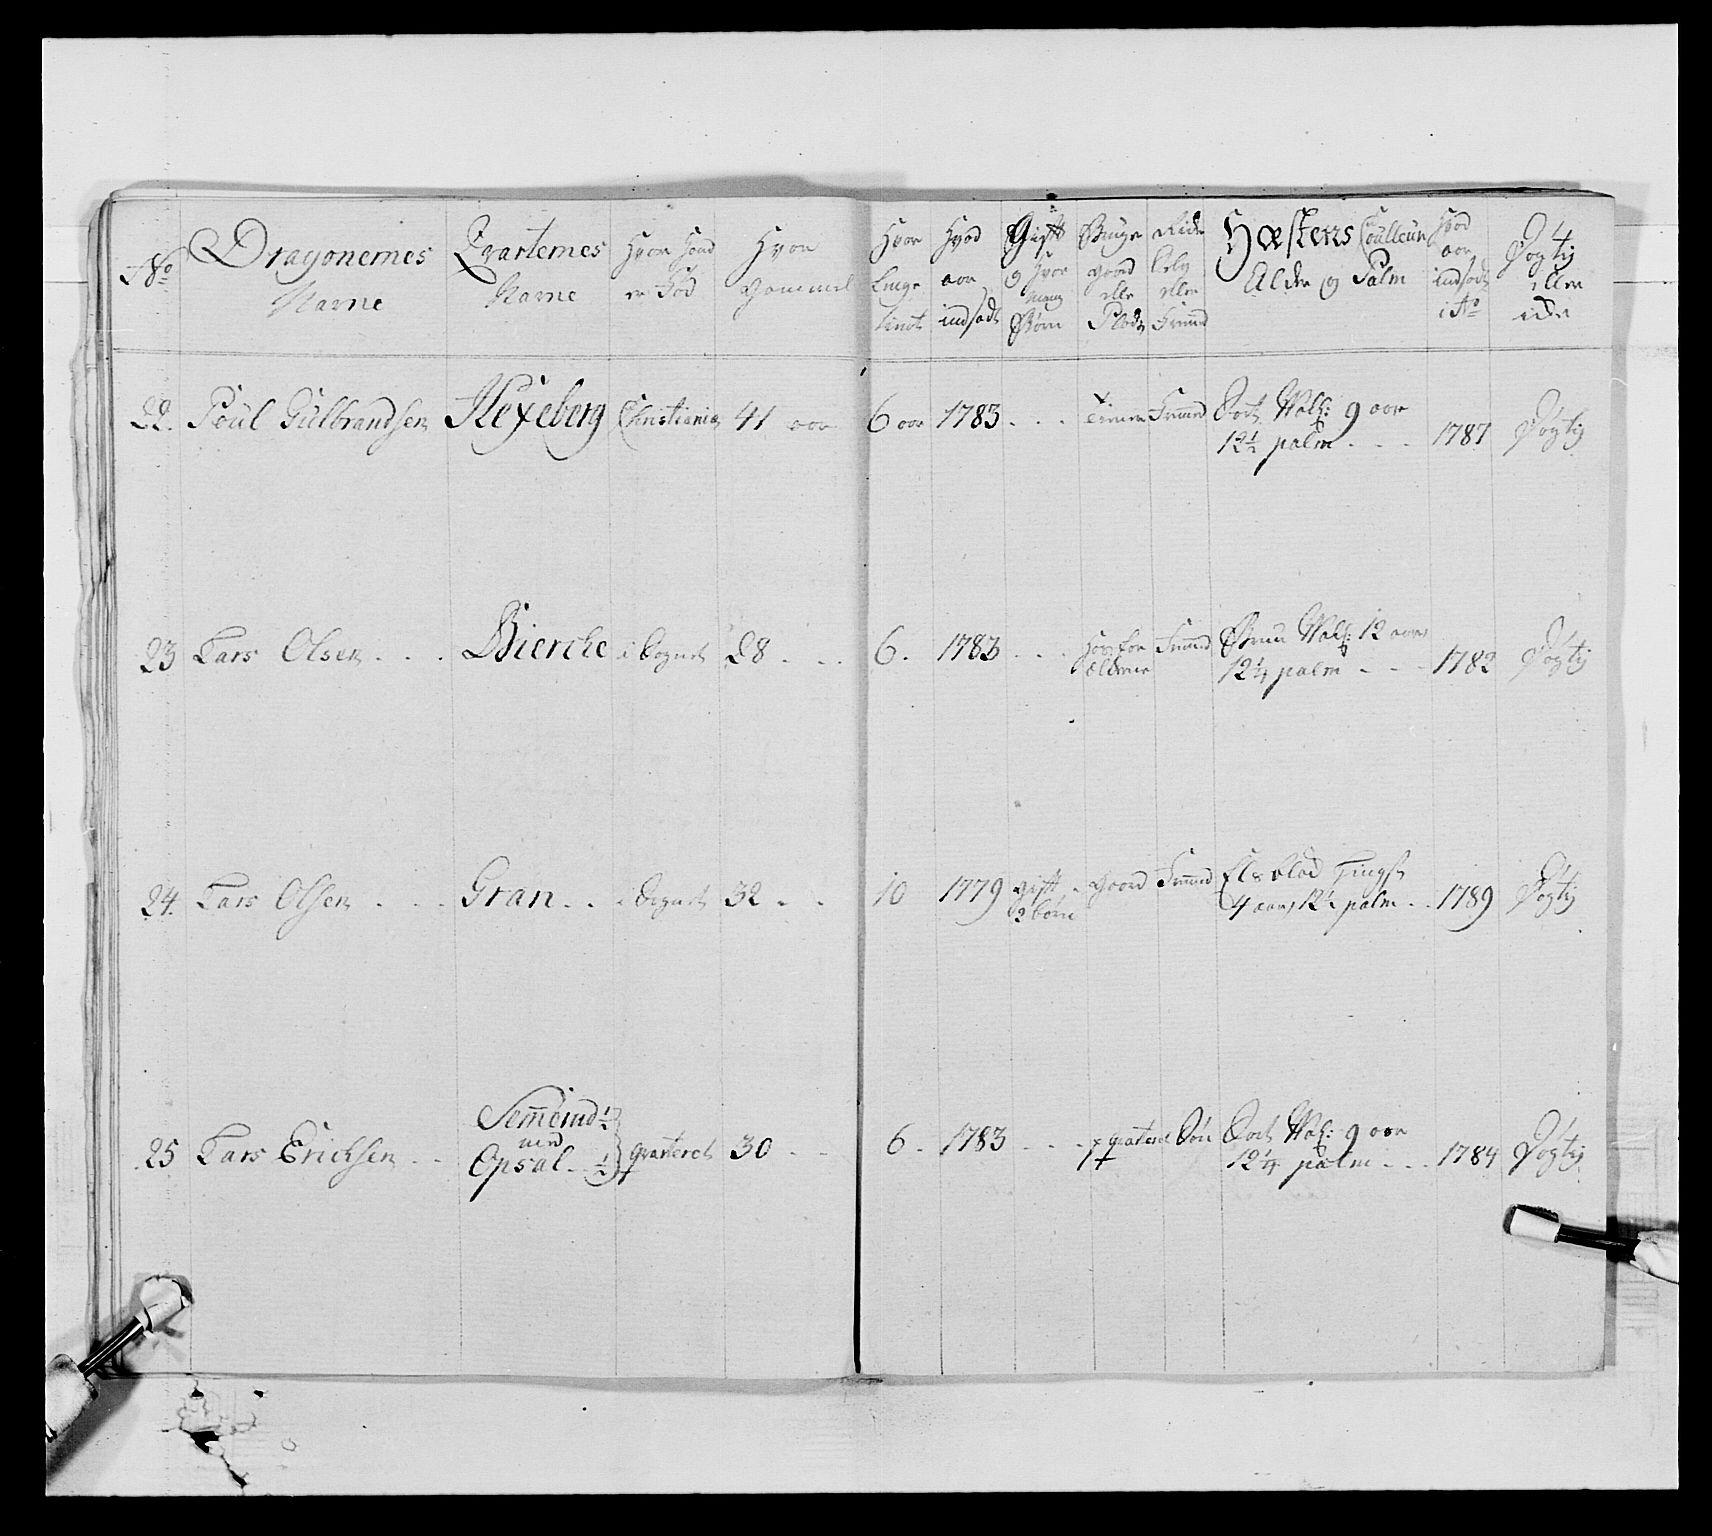 No
Dragonernes
Navne
Qvarternes
Navne
Hvor hand
er Fød
Hvor
gammel
Hvor
Lenge
tient
Hvad
aar
indsadt
Gift
og hvor
mang
Børn
Bruger
gaard
eller
Plads
Ride
selv
eller
Fremd
Hæstens Coulleur
Alder og Palm
Hvad
aar
indsadt
i Ao
Dygtig
eller
icke
22. Poul Gulbrandsen Hexeberg Christiania 41 aar 6 aar 1783 . . . Tiener Fremd Sort Wall: 9 aar
12½ palm . . . 1787 Dygtig
23 Lars Olsen . . . Bierche i Sognet 28 . . . 6 . 1783 . . . Hos for Fremd Brun Wall: 12 aar
ældrene 12¼ palm - - - 1782 Dygtig
24. Lars Olsen . . . Gran . . i Sognet 32 . . 10 1779 gift . gaard Fremd Elsblad Hingst
2 børn 4 aar, 12½ palm . . 1789 Dygtig
25 Lars Erichsen . . Semmind ½
ved
Opsal . . ½ qvarteret 30 . . 6 . 1783 . . qvarteret Søn Sort Wal: 9 aar
12¼ palm . . . 1784 Dygtig